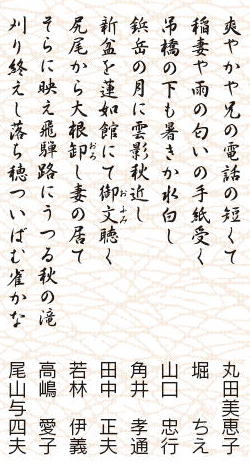 爽やかや兄の電話の短くて 丸田美恵子
稲妻や雨の匂いの手紙受く 堀 ちえ
吊橋の下も暑きか水白し 山口 忠行
鋲岳の月に雲影秋近し 角井 孝通
新盆を蓮如館にて御文聴く 田中 正夫
おふみ
尻尾から大根卸し妻の居て 若林 伊義
おろ
そらに映え飛騨路にうつる秋の滝 高嶋 愛子
刈り終えし落ち穂ついばむ雀かな 尾山与四夫